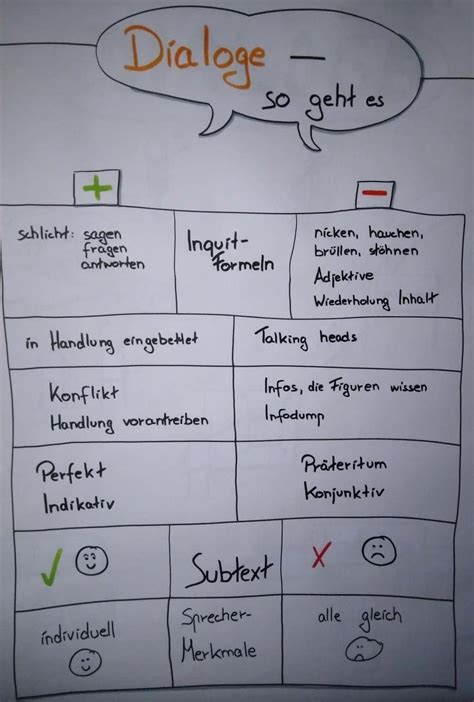 Dialoge –
so geht es
+
–
schlicht: sagen
fragen
antworten
Inquit-
Formeln
nicken, hauchen,
brüllen, stöhnen
Adjektive
Wiederholung Inhalt
in Handlung eingebettet
Talking heads
Konflikt
Handlung vorantreiben
Infos, die Figuren wissen
Infodump
Perfekt
Indikativ
Präteritum
Konjunktiv
Subtext
individuell
Sprecher-
Merkmale
alle gleich